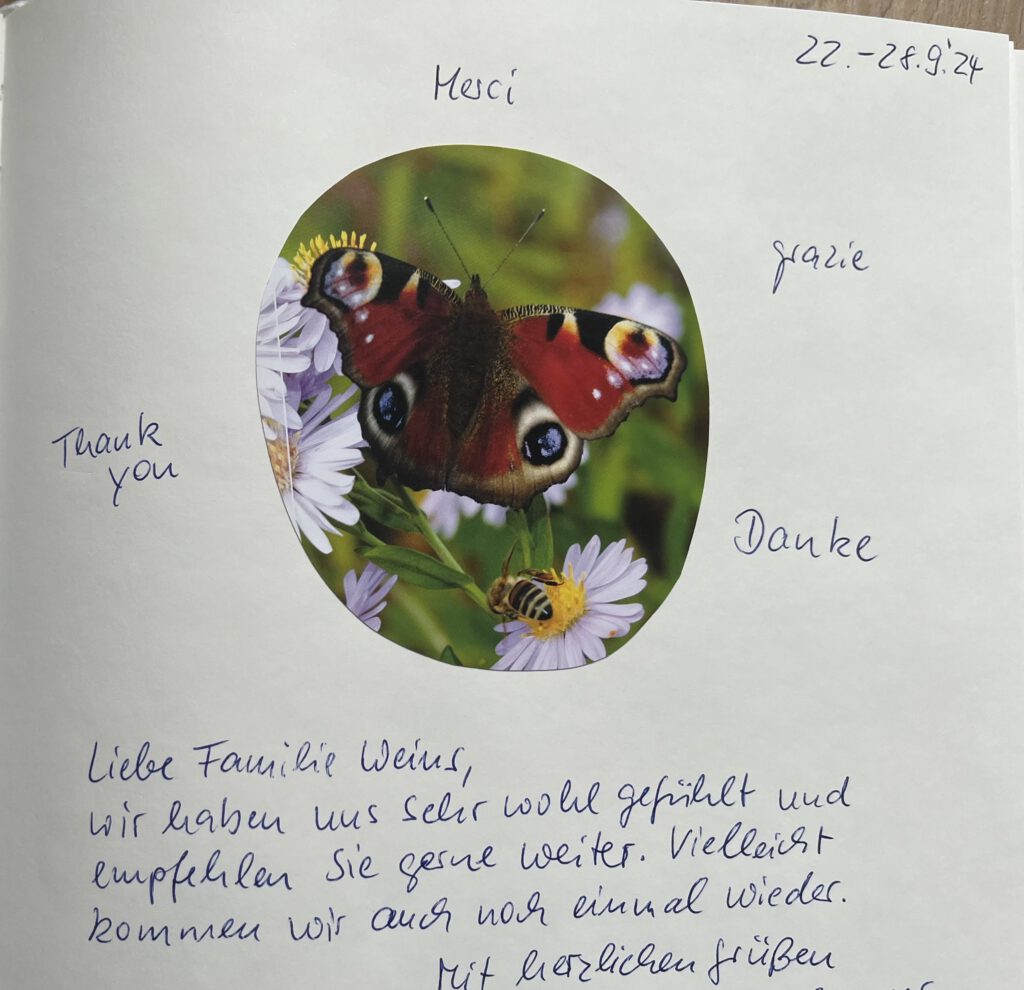 22.-28.9.'24
Merci
grazie
Thank
you
Danke
Liebe Familie Weins,
wir haben uns sehr wohl gefühlt und
empfehlen Sie gerne weiter. Vielleicht
kommen wir auch noch einmal wieder.
Mit herzlichen Grüßen